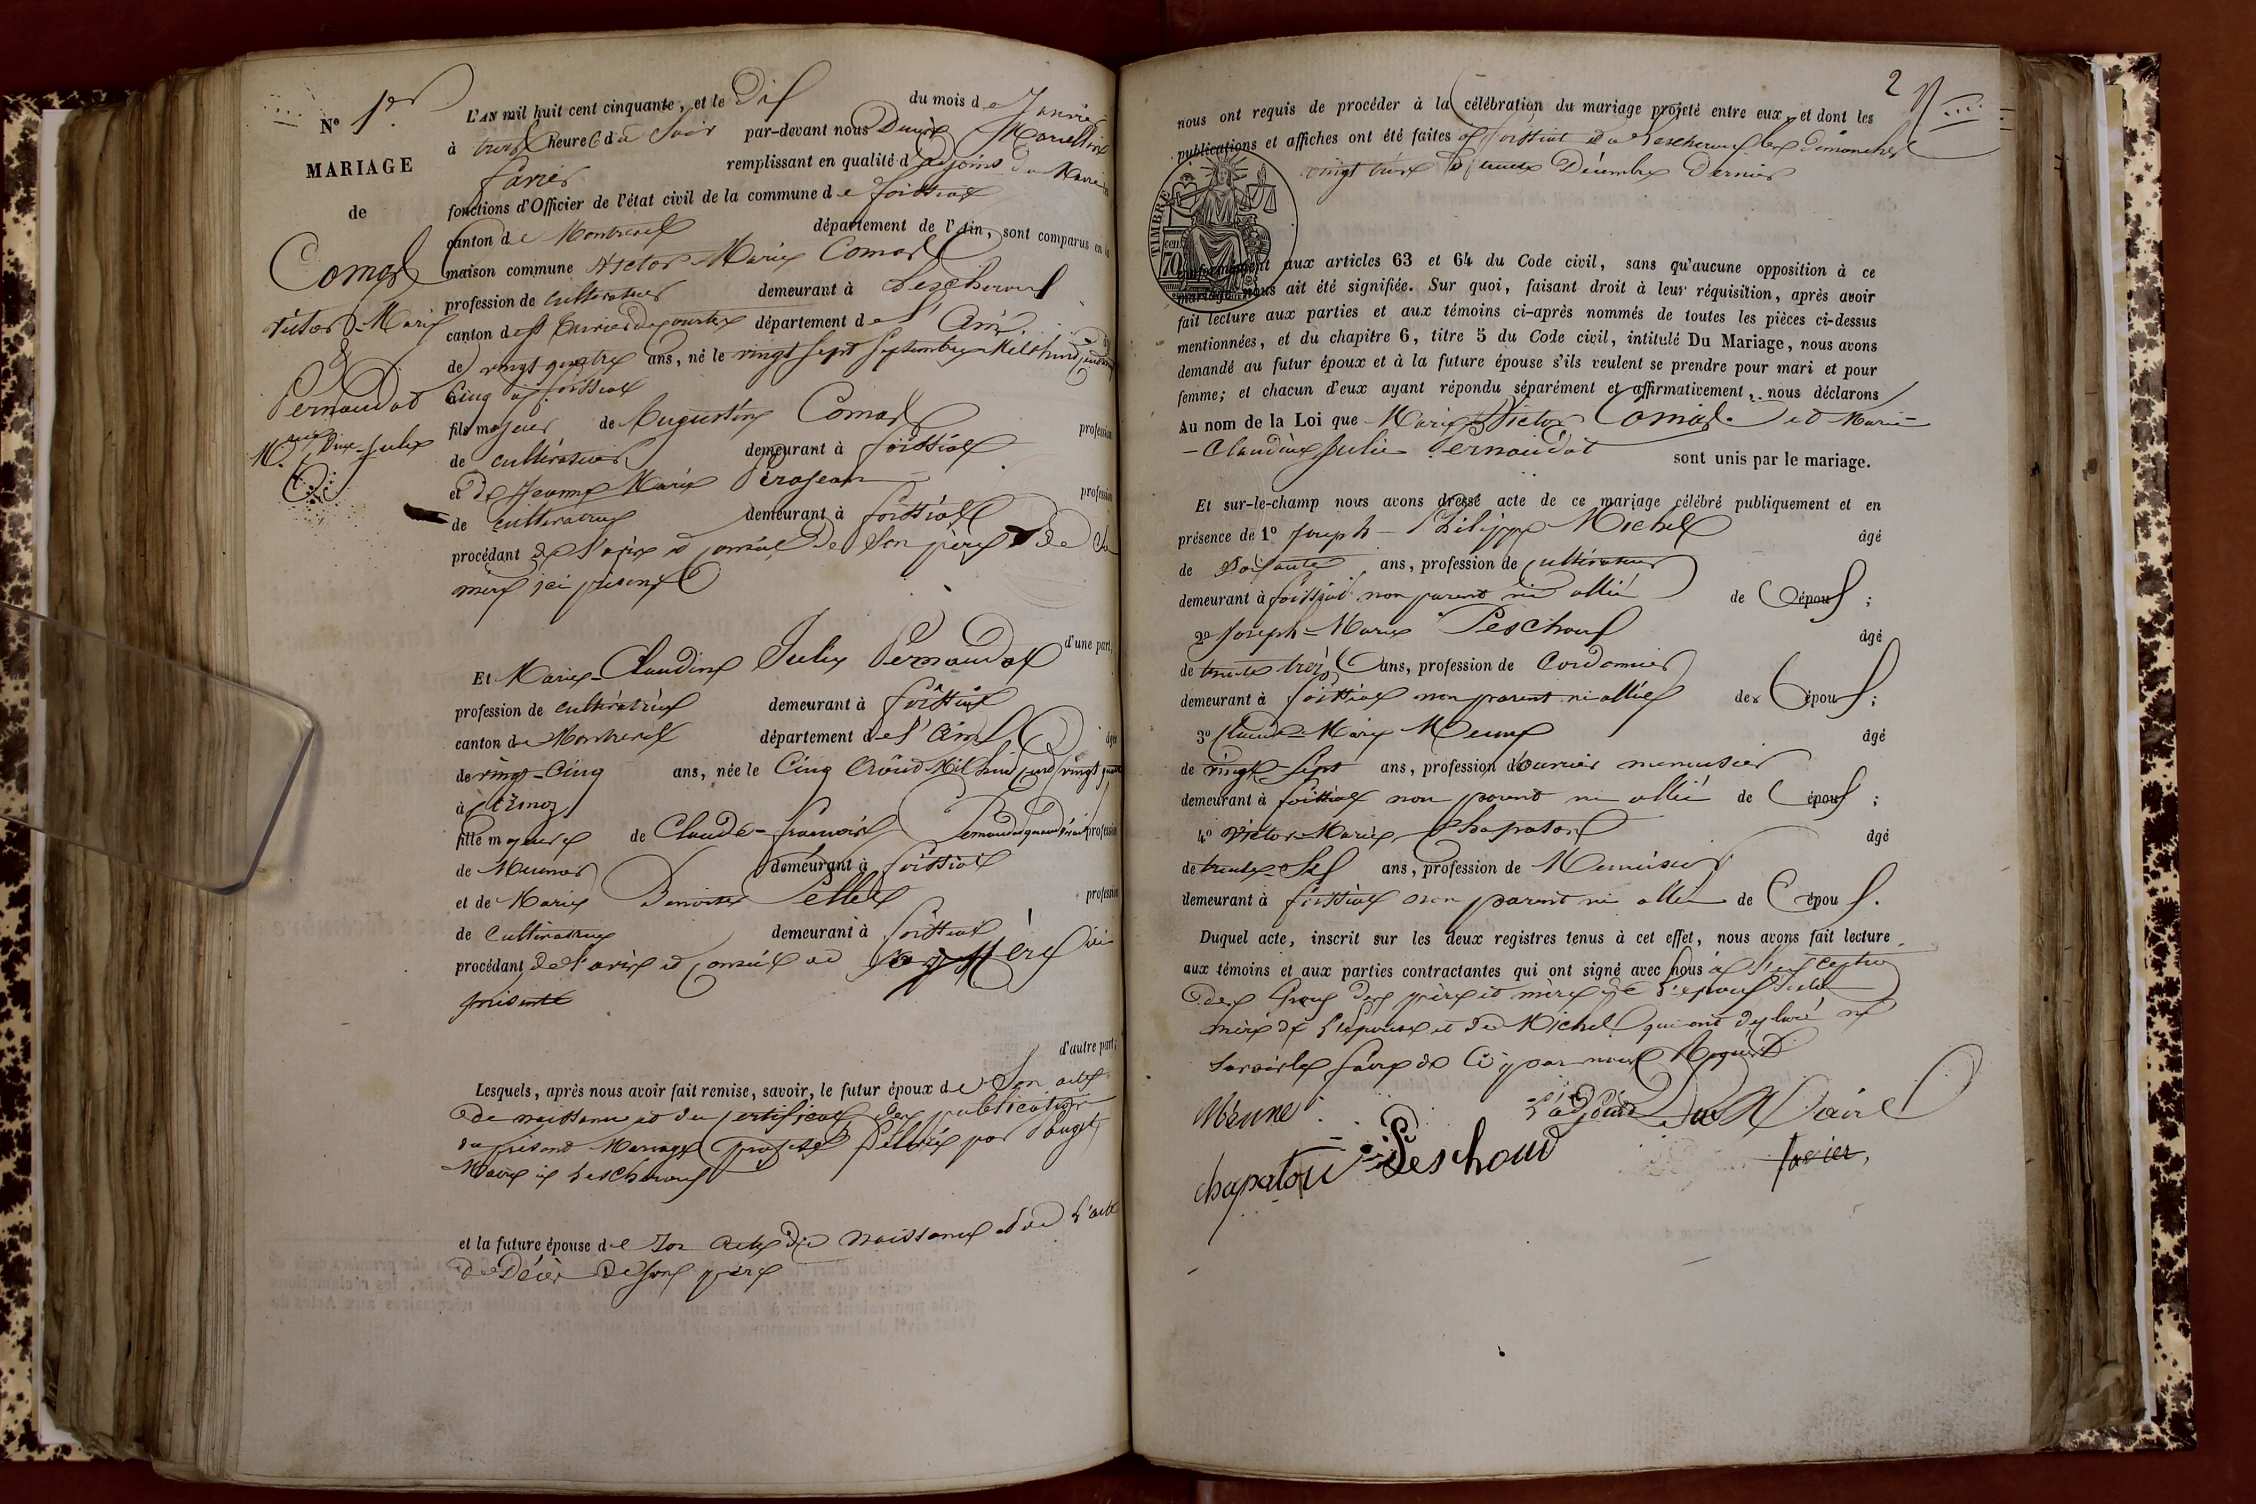 N° 1er
MARIAGE
de
Comas
Victor-Marie
&
Pernoudat
Mie Dine-Julie
L'AN mil huit cent cinquante, et le Dix du mois de Janvier
à trois heures du soir par-devant nous
Favier remplissant en qualité d'adjoint du Maire les
fonctions d'Officier de l'état civil de la commune de foissiat
canton de Montrevel département de l'Ain, sont comparus en la
maison commune Victor Marie Comas
profession de cultivateur demeurant à Lescheroux
canton de St département de l'Ain. âgé
de vingt quatre ans, né le vingt sept septembre Mil huit cent vingt
Cinq à foissiat
fils majeur de Augustin Comas profession
de cultivateur demeurant à foissiat
et de Jeanne Marie Pérojean profession
de cultivatrice demeurant à foissiat
procédant de l'avis et conseil de Son père et de sa
mère ici présens
d'une part,
Et Marie-Claudine Julie Pernoudat
profession de cultivatrice demeurant à foissiat
canton de Montrevel département de l'Ain âgée
de vingt-Cinq ans, née le Cinq Août Mil huit cent vingt quatre
à Etrez
fille majeure de Claude-françois Pernoudat quand vivait profession
de Meunier demeurant à foissiat
et de Marie Benoite Pellet profession
de Cultivatrice demeurant à foissiat
procédant de l'avis et conseil de Mère ici
présente
d'autre part;
Lesquels, après nous avoir fait remise, savoir, le futur époux de Son acte
de naissance et du certificat des publications
du présent Mariage projeté délivré par
Maire de Lescheroux
et la future épouse de Son Acte de naissance et de L'acte
de Décès de son père
2
nous ont requis de procéder à la célébration du mariage projeté entre eux, et dont les
publications et affiches ont été faites à foissiat et à Lescheroux les dimanches
vingt trois et trente Décembre Dernier
TIMBRE
70
conformément aux articles 63 et 64 du Code civil, sans qu'aucune opposition à ce
mariage nous ait été signifiée. Sur quoi, faisant droit à leur réquisition, après avoir
fait lecture aux parties et aux témoins ci-après nommés de toutes les pièces ci-dessus
mentionnées, et du chapitre 6, titre 5 du Code civil, intitulé Du Mariage, nous avons
demandé au futur époux et à la future épouse s'ils veulent se prendre pour mari et pour
femme; et chacun d'eux ayant répondu séparément et affirmativement, nous déclarons
Au nom de la Loi que Marie Victor Comas et Marie-
-Claudine Julie Pernoudat sont unis par le mariage.
Et sur-le-champ nous avons dressé acte de ce mariage célébré publiquement et en
présence de 1° Joseph-Philippe Michel âgé
de soixante ans, profession de cultivateur
demeurant à foissiat non parent ni allié des époux;
2° Joseph-Marie Peschoux âgé
de trente trois ans, profession de Cordonnier
demeurant à foissiat non parent ni allié des époux;
3° Claude-Marie Meune âgé
de vingt-Sept ans, profession d'ouvrier menuisier
demeurant à foissiat non parent ni allié des époux;
4° Victor-Marie Chapaton âgé
de trente-Six ans, profession de Menuisier
demeurant à foissiat non parent ni allié des époux.
Duquel acte, inscrit sur les deux registres tenus à cet effet, nous avons fait lecture
aux témoins et aux parties contractantes qui ont signé avec nous à L'exception
des époux des père et mère de L'époux de la
mère de L'épouse et de Michel qui ont déclaré ne
savoir le faire de ce par nous Requis
L'adjoint Du Maire
Meune
chapaton Peschoud Favier